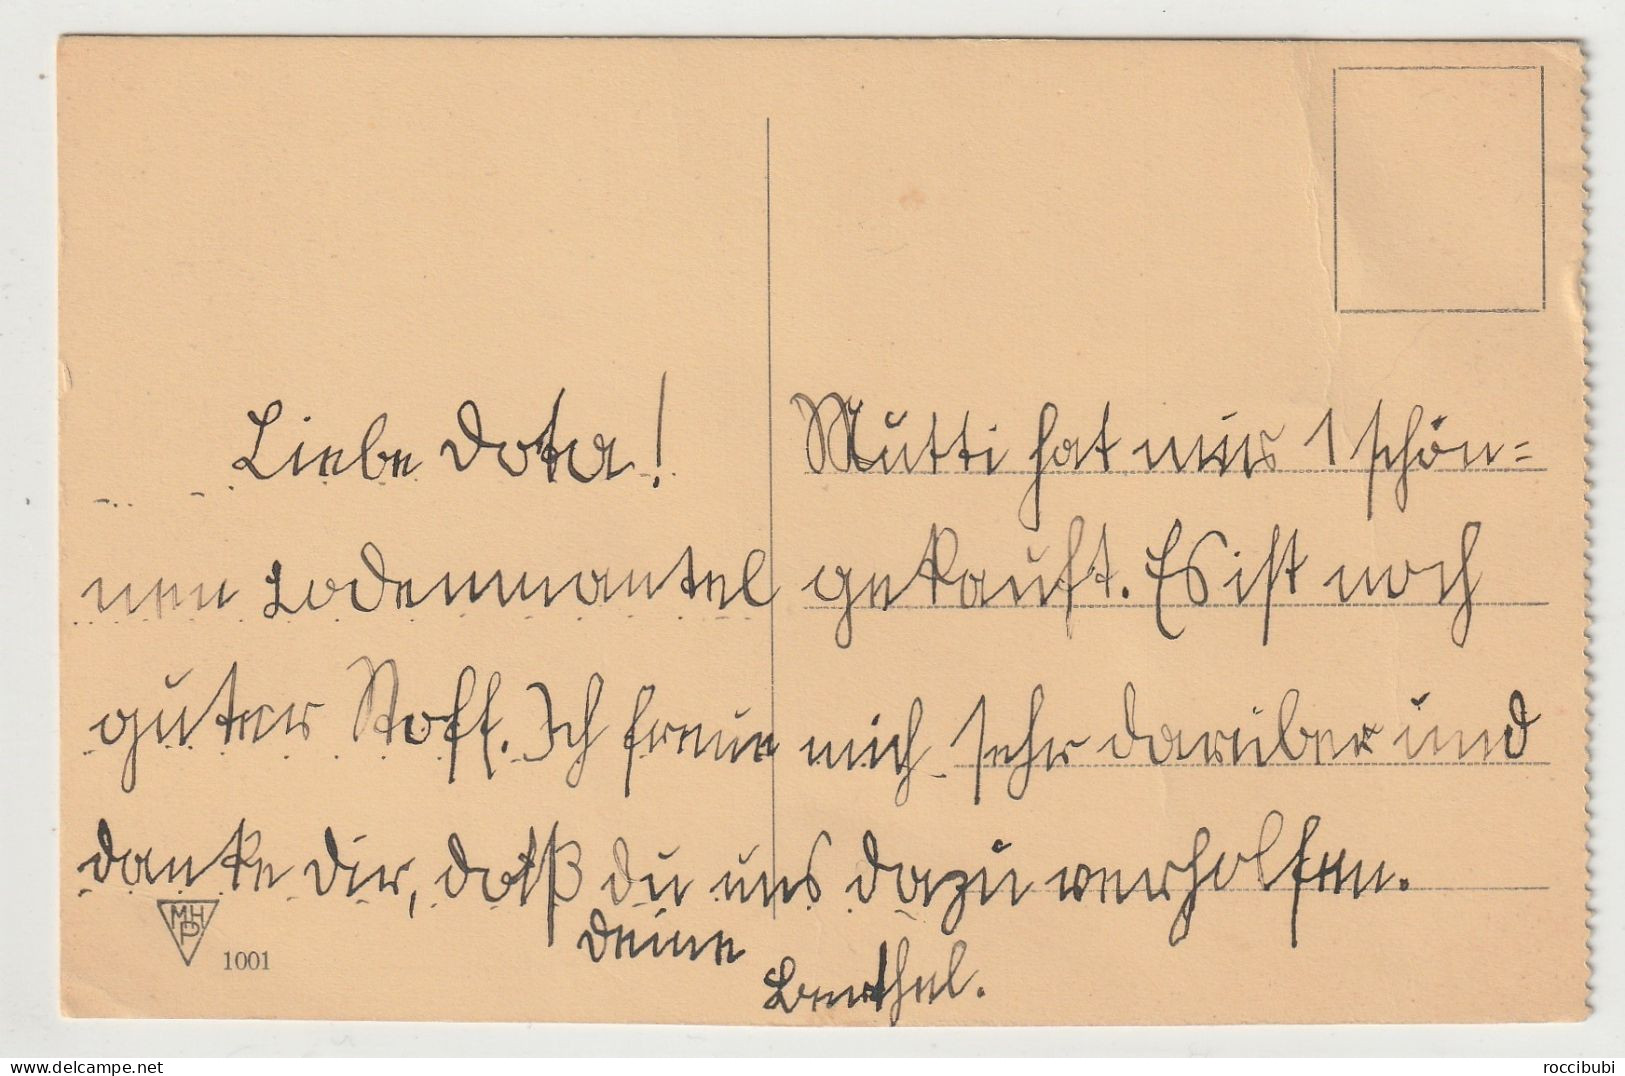 Liebe Dota! Mutti hat mir 1 schön=
nen Lodenmantel gekauft. Es ist noch
guter Stoff. Ich freue mich sehr darüber und
danke Dir, daß du uns dazu verholfen.
Deine
Berthel.
MHP
1001
roccibubi